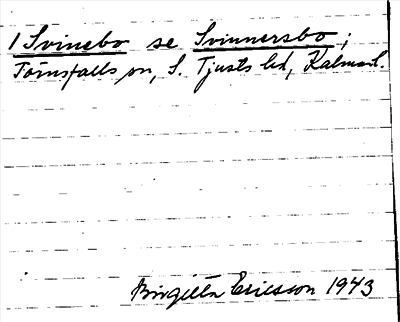 1 Svinebo se Svinnersbo;
Törnsfalls sn, S. Tjusts hd, Kalmar l.
Birgitta Ericsson 1943